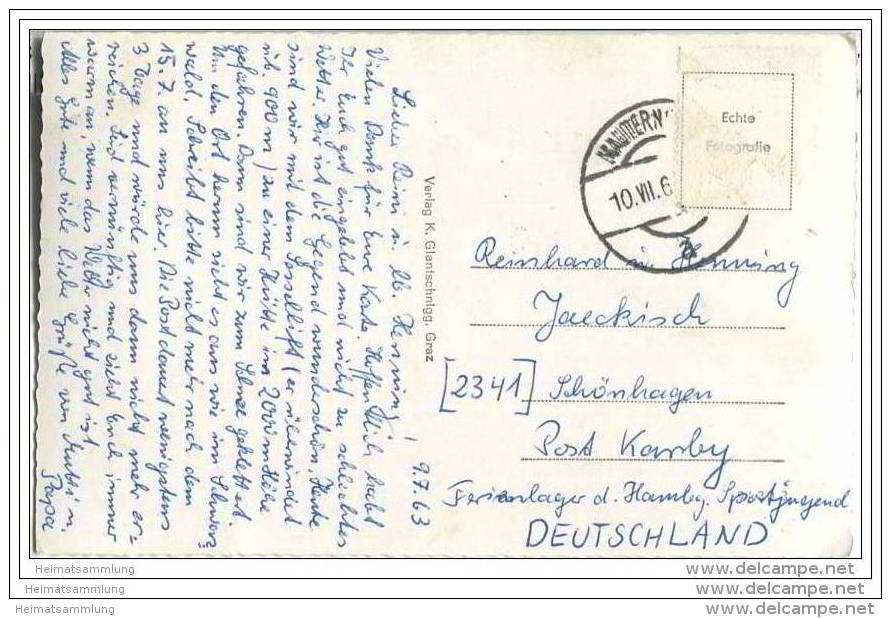 9.7.63
Lieber Reini u. lb. Henning!
Vielen Dank für Eure Karte. Hoffentlich habt
Ihr Euch gut eingelebt und nicht zu schlechtes
Wetter. Hier ist die Gegend wunderschön. Heute
sind wir mit dem Sessellift (er überwindet
üb. 900 m) zu einer Hütte in 2000 m Höhe
gefahren. Dann sind wir zum Schnee geklettert.
Um den Ort herum sieht es aus wie im Schwarz-
wald. Schreibt bitte nicht mehr nach dem
15.7. an uns hier. Die Post dauert wenigstens
3 Tage und würde uns dann nicht mehr er-
reichen. Seid vernünftig und zieht Euch immer
warm an, wenn das Wetter nicht gut ist.
Alles Gute und viele liebe Grüße von Mutti u.
Papa
Verlag K. Glantschnigg, Graz
Echte
Fotografie
MAUTERN
10.VII.6
Reinhard u. Henning
Jaeckisch
[2341] Schönhagen
Post Karby
Ferienlager d. Hambg. Sportjugend
DEUTSCHLAND
www.delcampe.net
Heimatsammlung
www.delcampe.net
Heimatsammlung
www.delcampe.net
Heimatsammlung